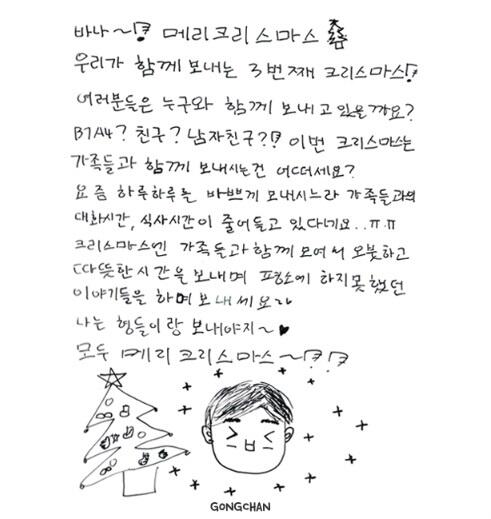 바나~!? 메리크리스마스
우리가 함께 보내는 3번째 크리스마스!?
여러분들은 누구와 함께 보내고 있을까요?
B1A4? 친구? 남자친구?!? 이번 크리스마스는
가족들과 함께 보내시는건 어떠세요?
요즘 하루하루를 바쁘게 보내시느라 가족들과의
대화시간, 식사시간이 줄어들고 있다네요..ㅠㅠ
크리스마스엔 가족들과함께 모여서 오붓하고
따뜻한시간을 보내며 평소에 하지못했던
이야기들을 하며 보내세요~
나는 형들이랑 보내야지~♥
모두 메리크리스마스~!?!?
GONGCHAN